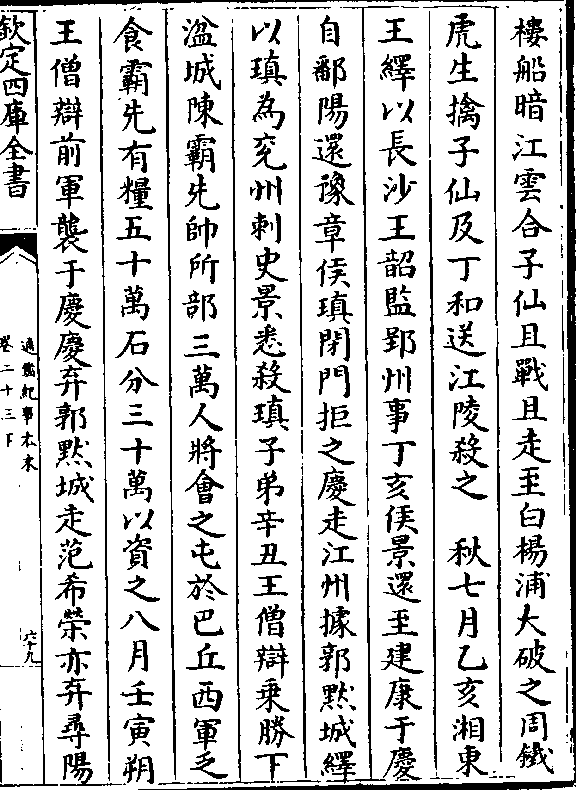 樓船暗江雲合子仙且戰且走至白楊浦大破之周鐵
虎生擒子仙及丁和送江陵殺之　秋七月乙亥湘東
王繹以長沙王韶監郢州事丁亥侯景還至建康于慶
自鄱陽還豫章侯瑱閉門拒之慶走江州據郭黙城繹
以瑱為兖州刺史景悉殺瑱子弟辛丑王僧辯乗勝下
湓城陳霸先帥所部三萬人將㑹之屯於巴丘西軍乏
食霸先有糧五十萬石分三十萬以資之八月壬寅朔
王僧辯前軍襲于慶慶弃郭黙城走范希榮亦弃尋陽
欽定四庫全書
通鑑紀事本末
卷二十三下
六十九